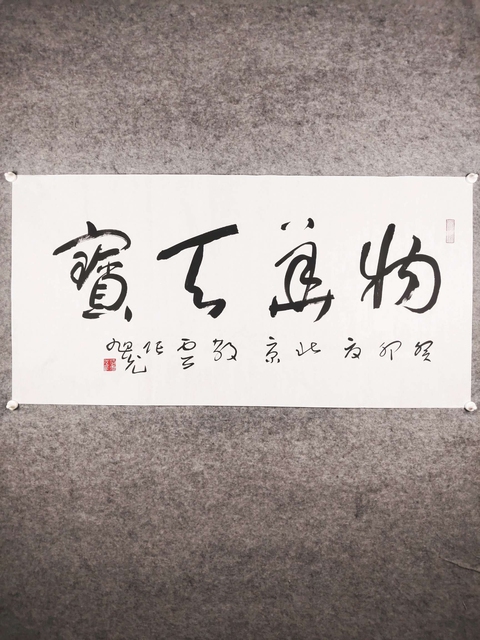 物華天寶
癸卯夏北京敬雲作